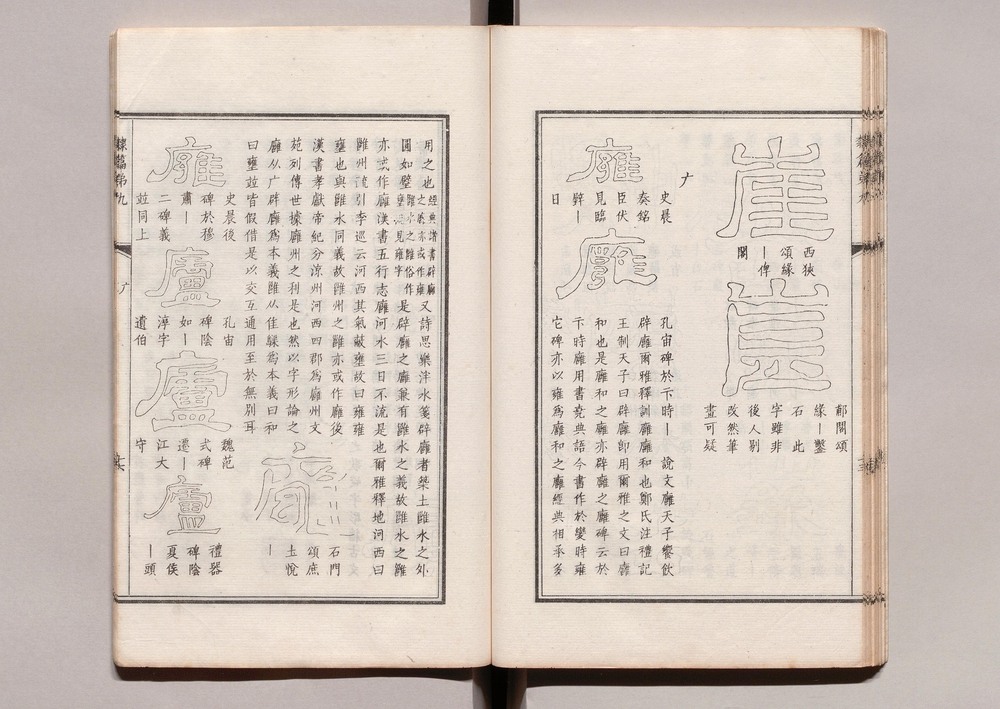 崖
西狹
頌緣
｜俾
閣
崖
郙閣頌
緣｜鑿
石　此
字雖非
後人剔
改然筆
畫可疑
广
廱
史晨
奏銘
臣伏
見臨
辟｜
日
廱
孔宙碑於卞時｜　說文廱天子饗飲
辟廱爾雅釋訓廱廱和也鄭氏注禮記
王制天子曰辟廱卽用爾雅之文曰廱
和也是廱和之廱亦辟廱之廱碑云於
卞時廱用書堯典語今書作於變時雍
它碑亦以雍爲廱和之廱經典相承多
用之也
又詩思樂泮水箋辟廱者築土雝水之外
圓如璧
是辟廱之廱兼有雝水之義故雝水之雝
亦或作廱漢書五行志廱河水三日不流是也爾雅釋地河西曰
雝州疏引李巡云河西其氣蔽壅故曰雍雍
壅也與雝水同義故雝州之雝亦或作廱後
漢書孝獻帝紀分涼州河西四郡爲廱州文
苑列傳世據廱州之利是也然以字形論之
廱从广辟廱爲本義雝从隹
爲本義曰和
曰壅竝皆假借是以交互通用至於無別耳
石門
頌庶
土悅
｜
廱
史晨後
碑於穆
肅｜
二碑義
竝同上
廬
孔宙
碑陰
如｜
淳字
遺伯
廬
魏范
式碑
遷｜
江大
守
廬
禮器
碑陰
夏侯
｜頭
隸篇第九
广